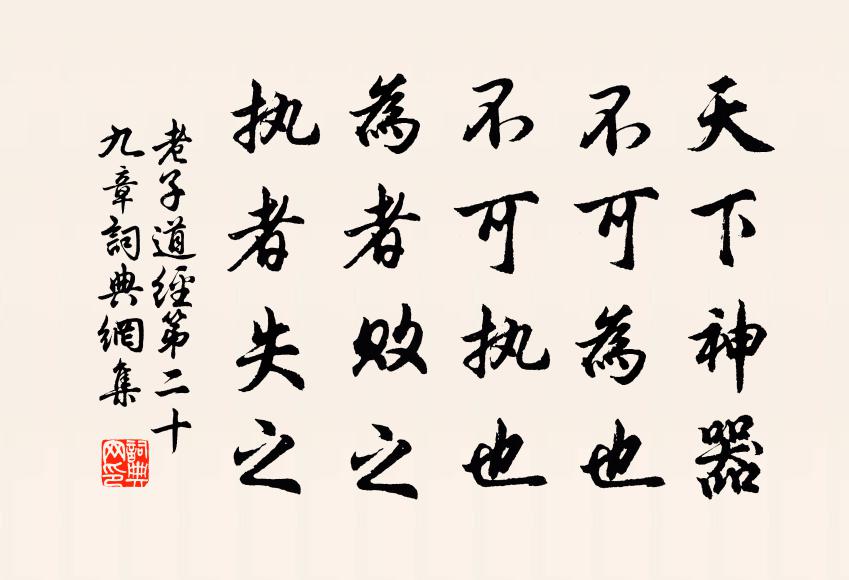 天下神器
不可為也
不可执也
為者败之
执者失之
老子道經第二十
九章詞典網集
詞典
网印